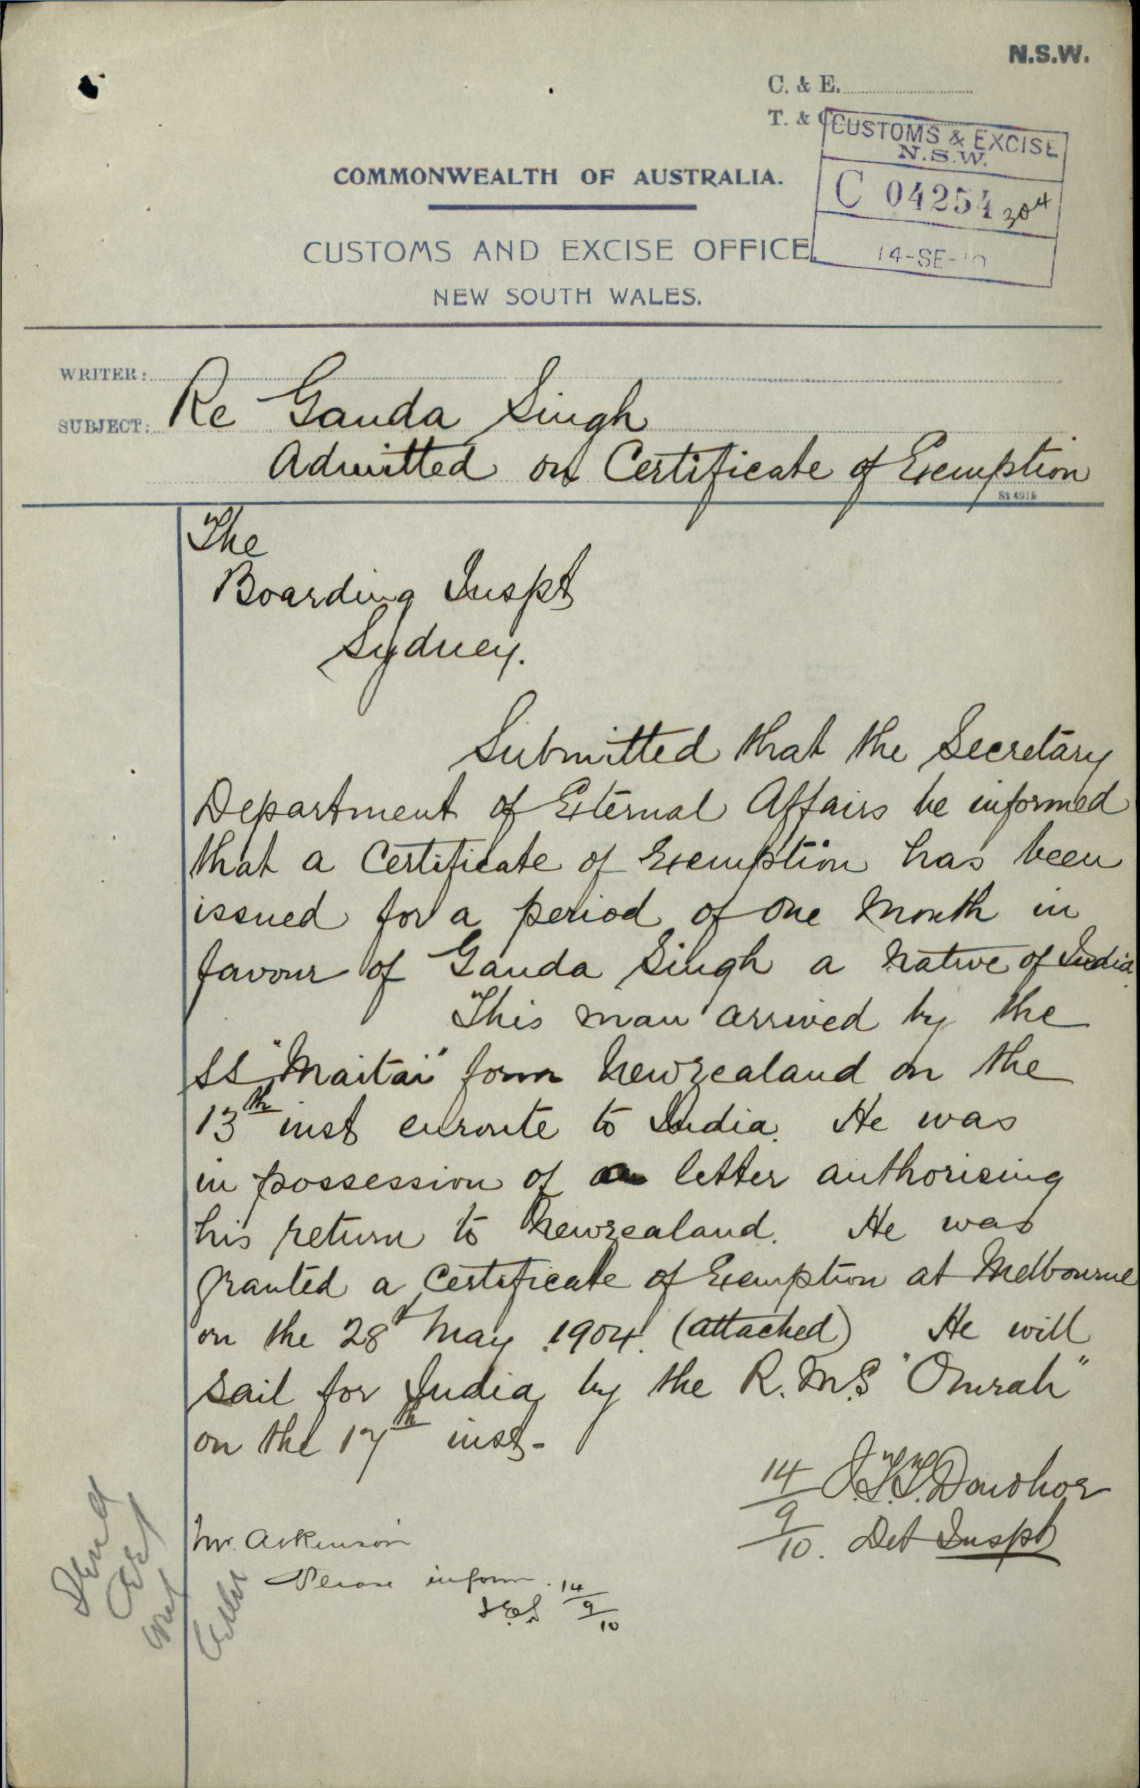 N.S.W.
C. & E.
T. & C.
CUSTOMS & EXCISE
N.S.W.
C 04254 304
14-SE-10
COMMONWEALTH OF AUSTRALIA.
CUSTOMS AND EXCISE OFFICE,
NEW SOUTH WALES.
WRITER:
SUBJECT: Re Ganda Singh
Admitted on Certificate of Exemption
The
Boarding Inspt
Sydney.
Submitted that the Secretary
Department of External Affairs be informed
that a Certificate of Exemption has been
issued for a period of one month in
favour of Ganda Singh a native of India.
This man arrived by the
SS "Maitai" from Newzealand on the
13th inst enroute to India. He was
in possession of a letter authorising
his return to Newzealand. He was
granted a Certificate of Exemption at Melbourne
on the 28th May 1904. (attached) He will
sail for India by the R.M.S "Omrah"
on the 17th inst-
14/9/10. J.T.T. Donohoe
Det Inspt
Mr. Atkinson
Please inform.
14/9/10
Send
Cert
with
letter